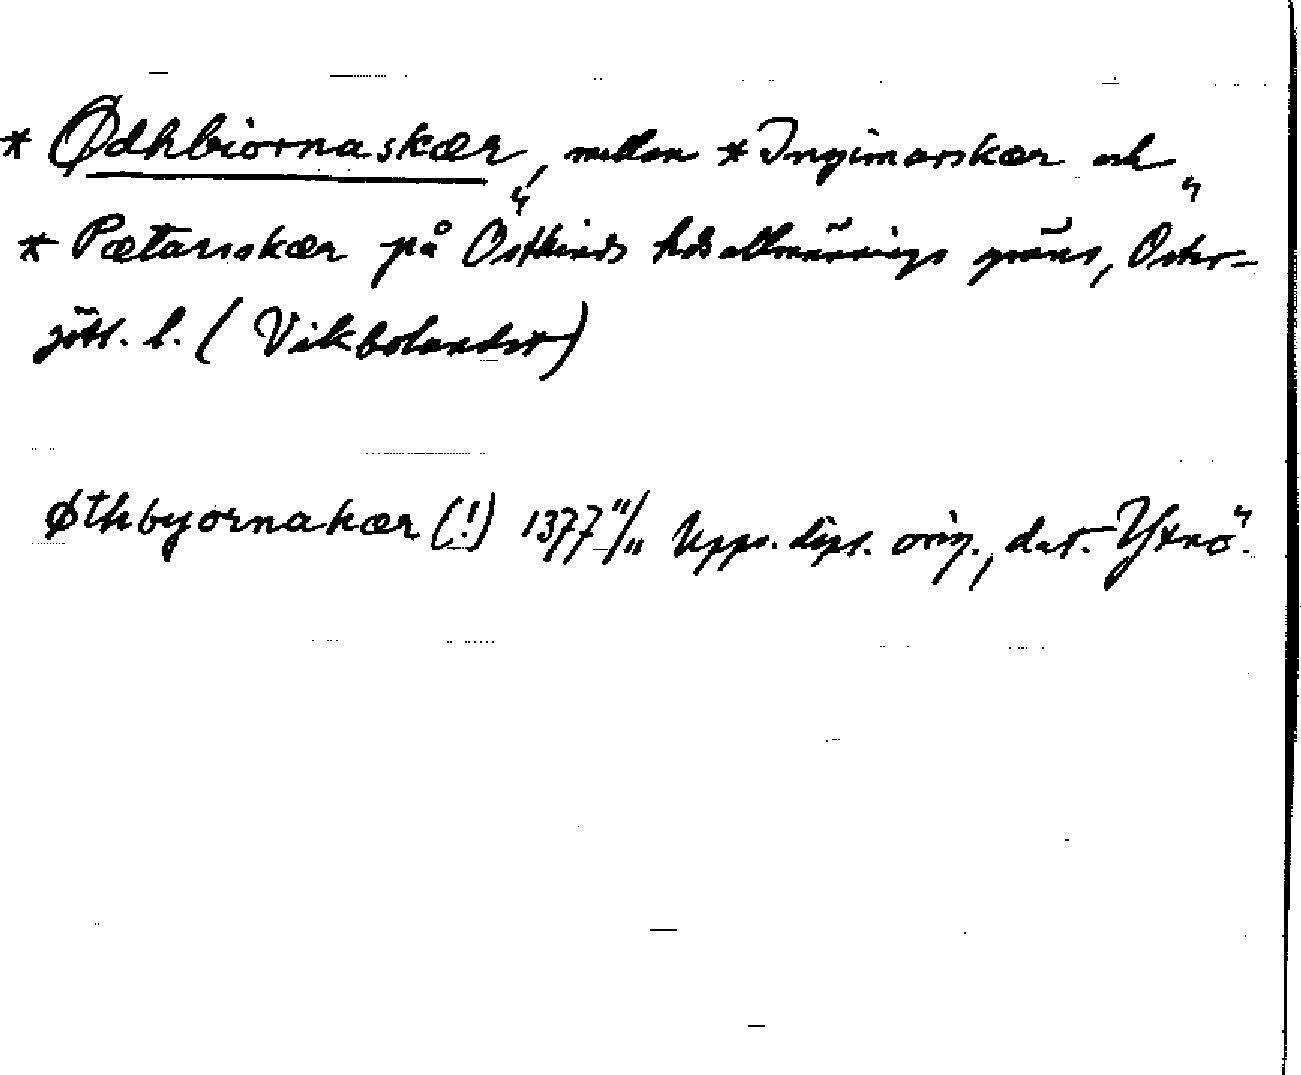 * Ødhbiornaskær, mellan * Ingimarskær och
* Pætarsskær på Östkinds hds allmännings gräns, Öster-
götl. l. (Vikbolandet)
Øthbyornakær (!) 1377 11/11 Upps. dipl. orig., dat. Ytnö.